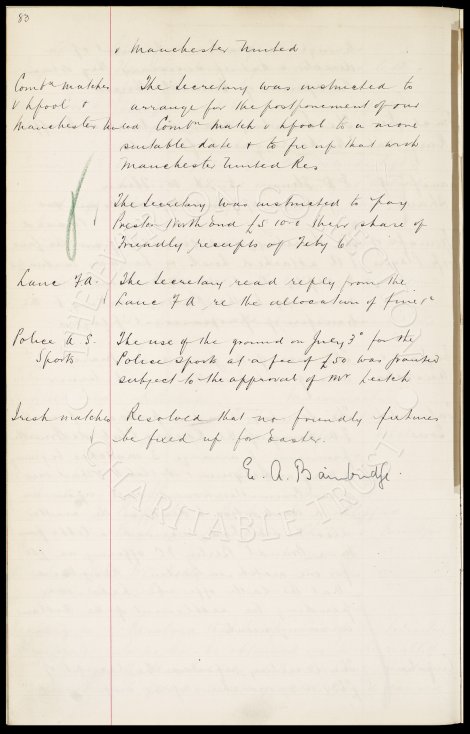 83
v Manchester United
Combn matches The Secretary was instructed to
v Lpool & arrange for the postponement of our
Manchester United Combn match v Lpool to a more
suitable date & to fix up that with
Manchester United Res
The Secretary was instructed to pay
Preston North End £5.10.0 their share of
Friendly receipts of Feby 6
Lanc F A. The Secretary read reply from the
Lanc F A re the allocation of fines
Police A S. The use of the ground on July 3d for the
Sports Police sports at a fee of £50 was granted
subject to the approval of Mr Leitch
Irish matches Resolved that no friendly fixtures
be fixed up for Easter.
E. A. Bainbridge.
CHARITABLE TRUST